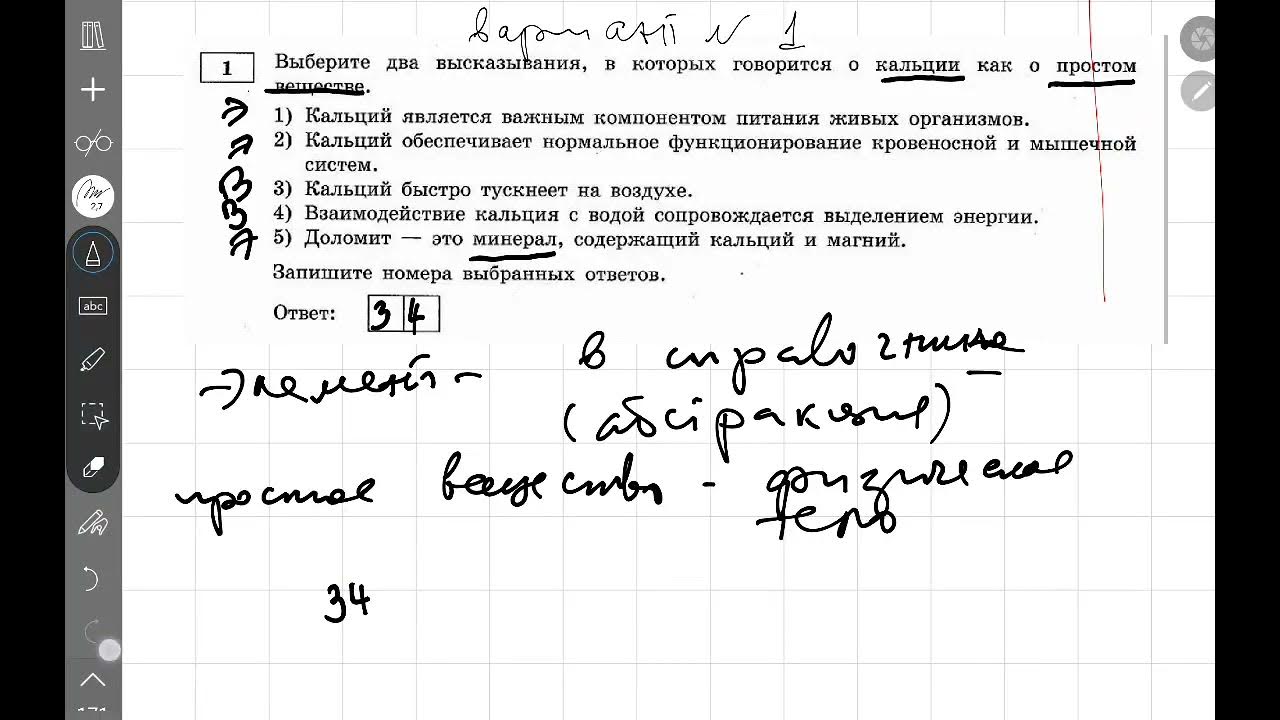 вариант N 1
1 Выберите два высказывания, в которых говорится о кальции как о простом
веществе.
Э 1) Кальций является важным компонентом питания живых организмов.
Э 2) Кальций обеспечивает нормальное функционирование кровеносной и мышечной
систем.
В 3) Кальций быстро тускнеет на воздухе.
В 4) Взаимодействие кальция с водой сопровождается выделением энергии.
Э 5) Доломит — это минерал, содержащий кальций и магний.
Запишите номера выбранных ответов.
Ответ: 3 4
Элемент - в справочнике
(абстракция)
простое вещество - физическое
тело
34
2,7
abc
171